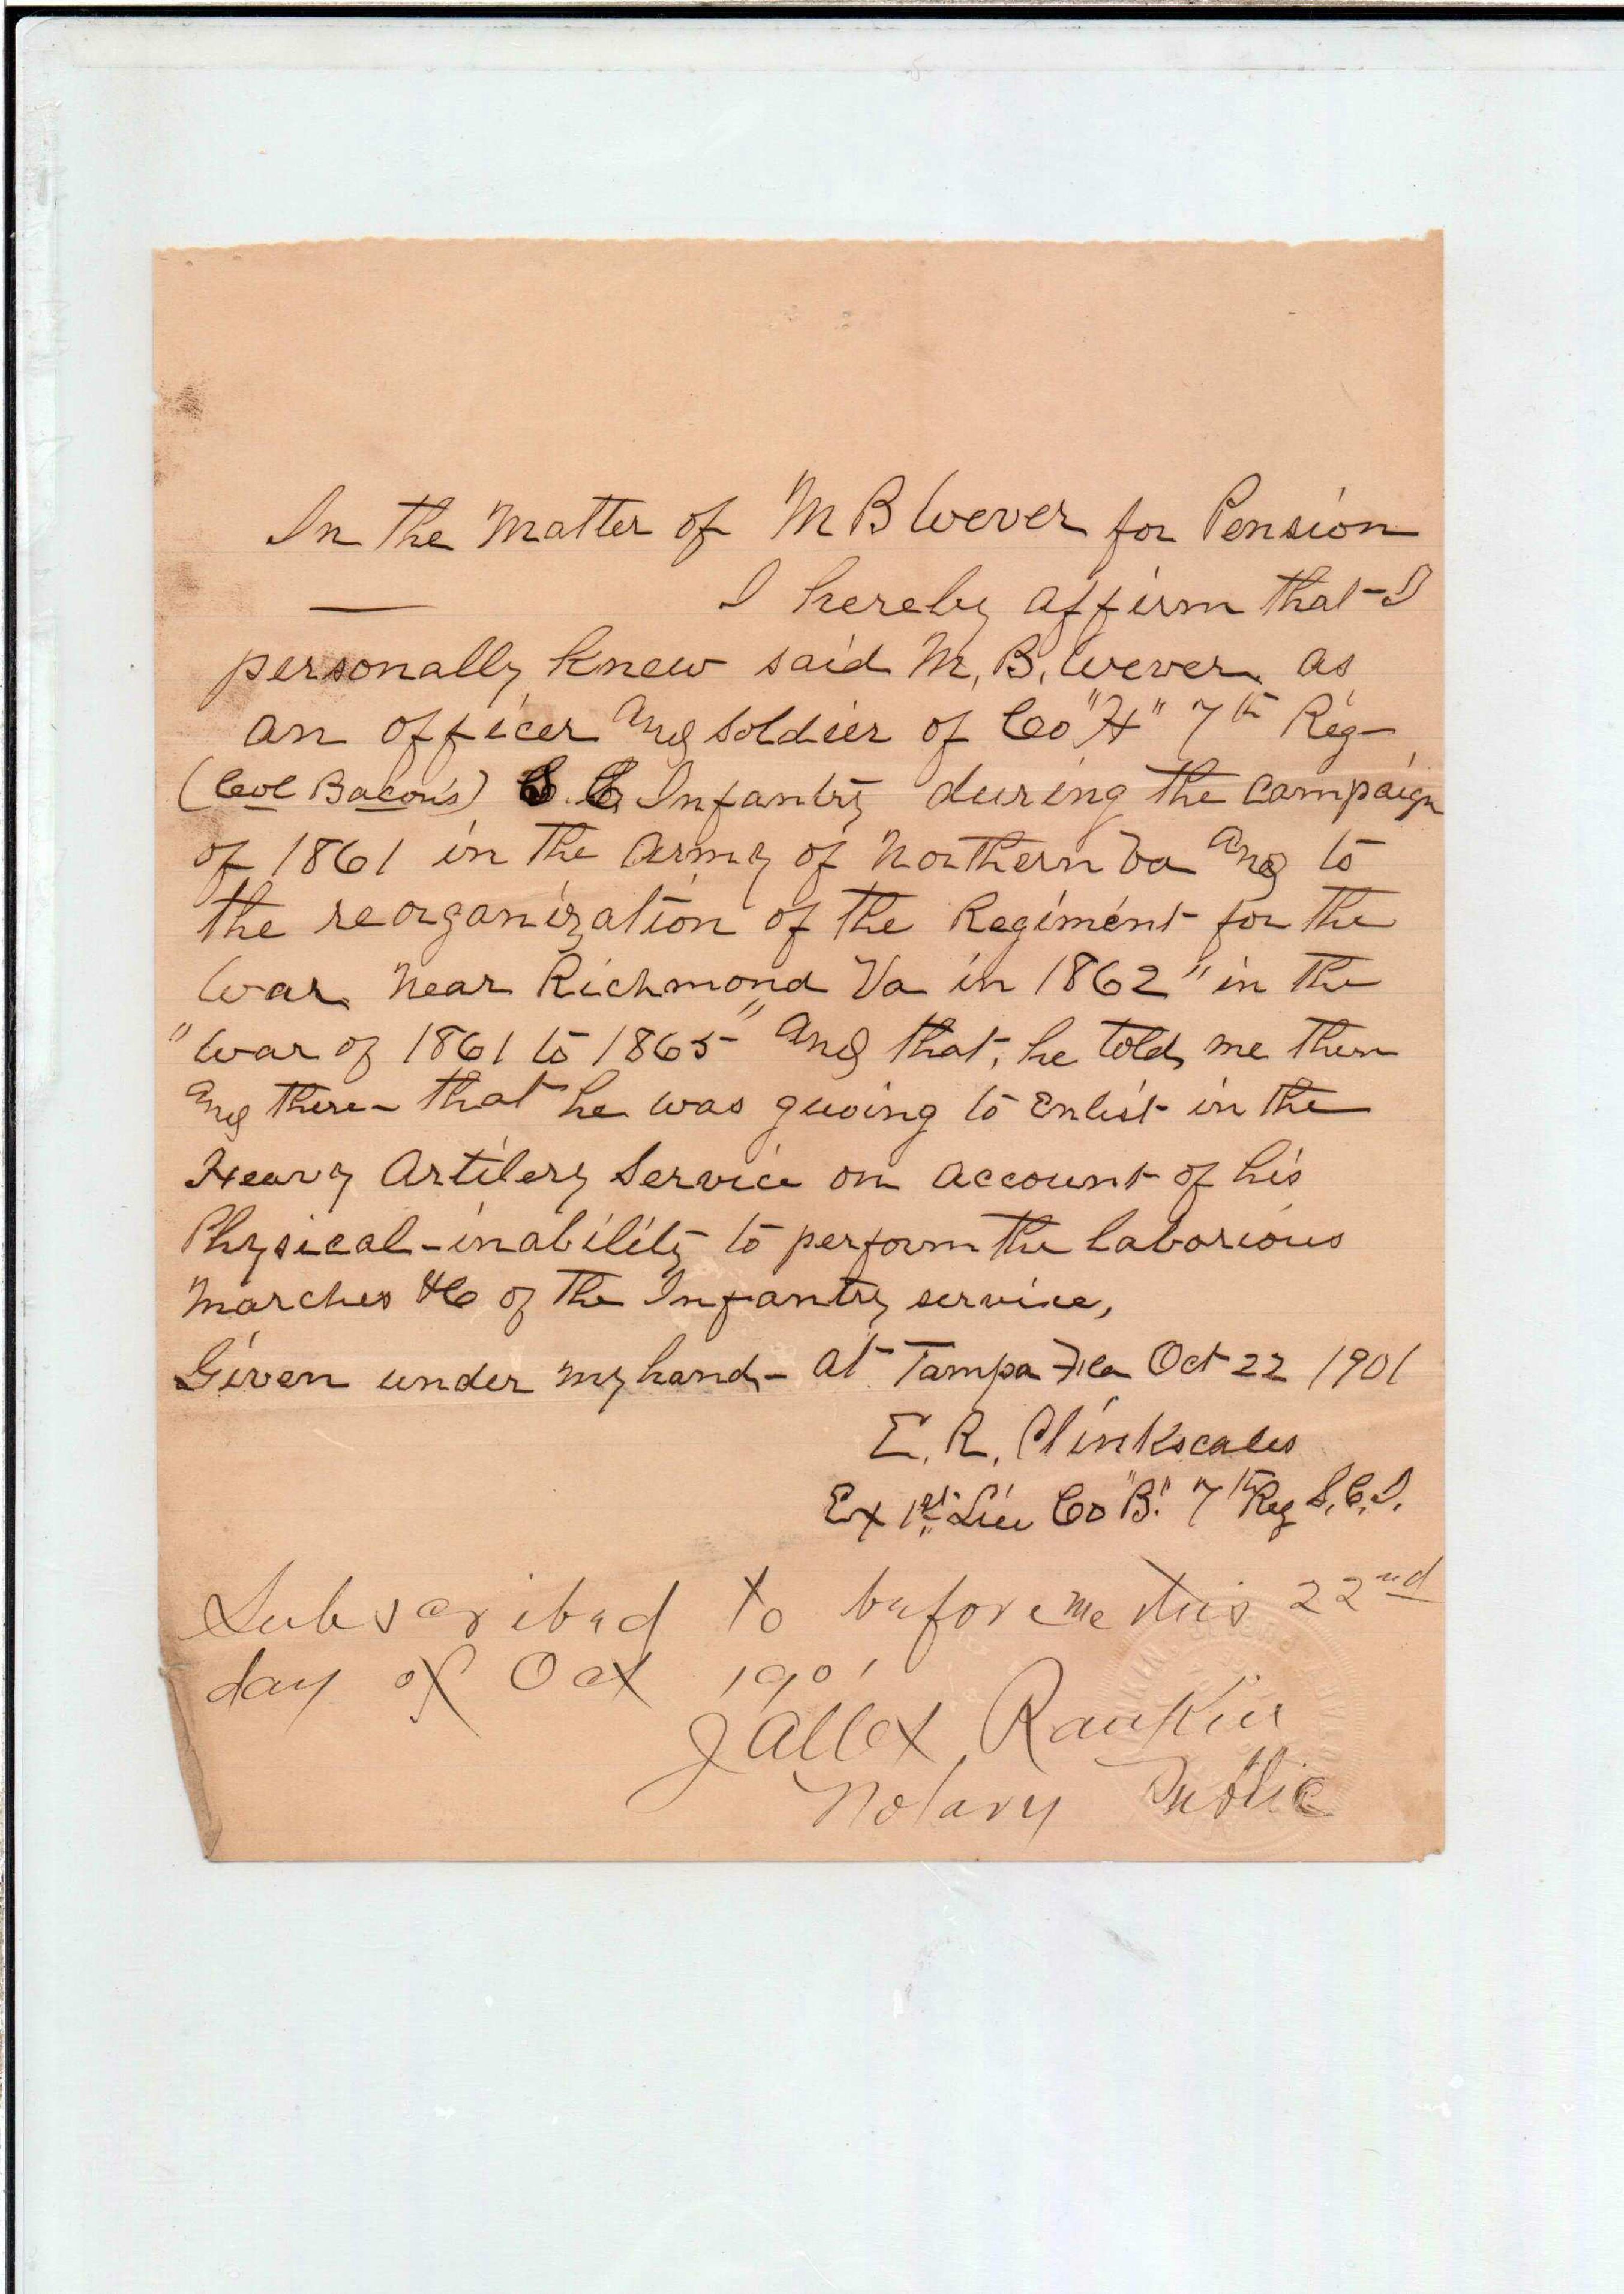 In the Matter of M B Wever for Pension
— I hereby affirm that - I
personally knew said M. B. Wever as
an officer and soldier of Co "H" 7th Reg -
(Col Bacon's) S. C. Infantry during the Campaign
of 1861 in the Army of Northern Va and to
the reorganization of the Regiment for the
War near Richmond Va in 1862 " in the
"War of 1861 to 1865" and that, he told me then
and there - that he was gwoing to Enlist in the
Heavy Artilery Service on account of his
Physical - inability to perform the laborious
Marches &C of the Infantry service,
Given under my hand - at Tampa Fla Oct 22 1901
E. R. Clinkscales
Ex 1st Lieu Co "B". 7th Reg S. C. I.
Subscribed to before me this 22nd
day of Oct 1901
J Allex Rankin
Notary Public